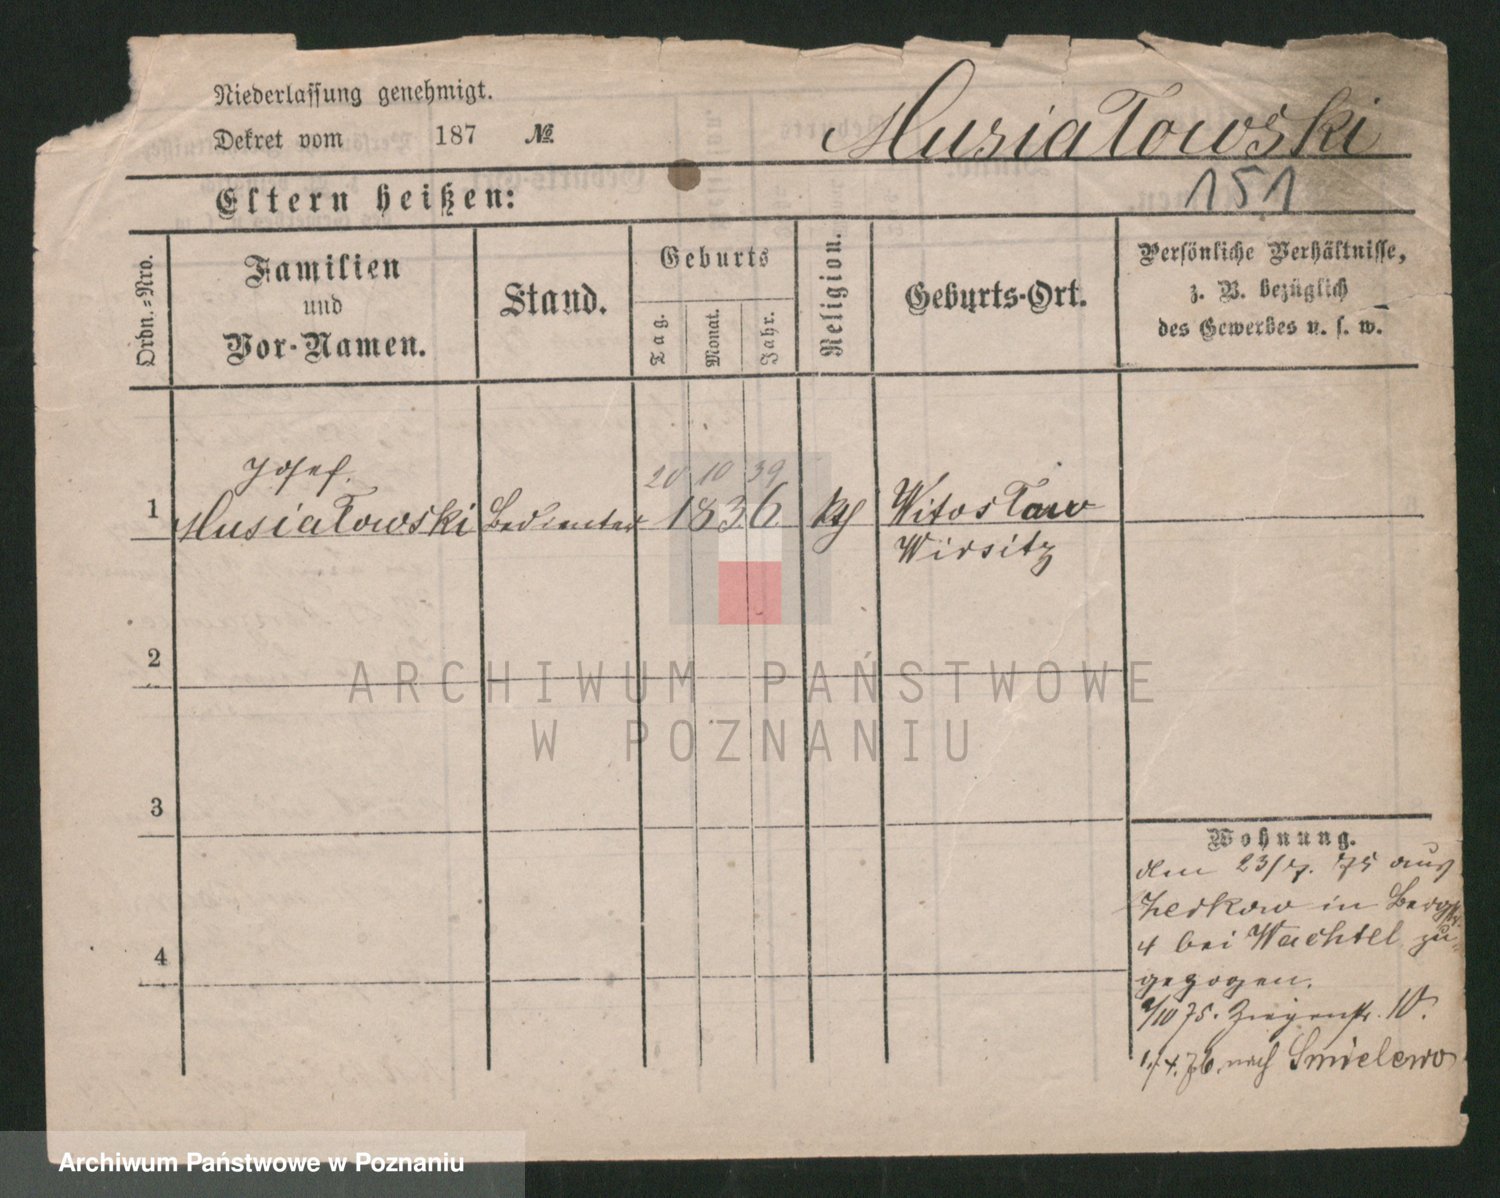 Niederlassung genehmigt.
Dekret vom 187 №
Musiałowski
Eltern heißen:
151
Ordn.-Nro.
Familien
und
Vor-Namen.
Stand.
Geburts
Tag.
Monat.
Jahr.
Religion.
Geburts-Ort.
Persönliche Verhältnisse,
z. B. bezüglich
des Gewerbes u. s. w.
Josef.
20 10 39
1 Musiałowski Bedienter 1836 kth Witosław
Wirsitz
2
3
4
Wohnung.
den 23/7. 75 aus
Zerkow in Bergstr
4 bei Wachtel zu-
gezogen.
/10 75. Ziegenstr. 10.
1/4. 76. nach Smielewo
ARCHIWUM PAŃSTWOWE
W POZNANIU
Archiwum Państwowe w Poznaniu